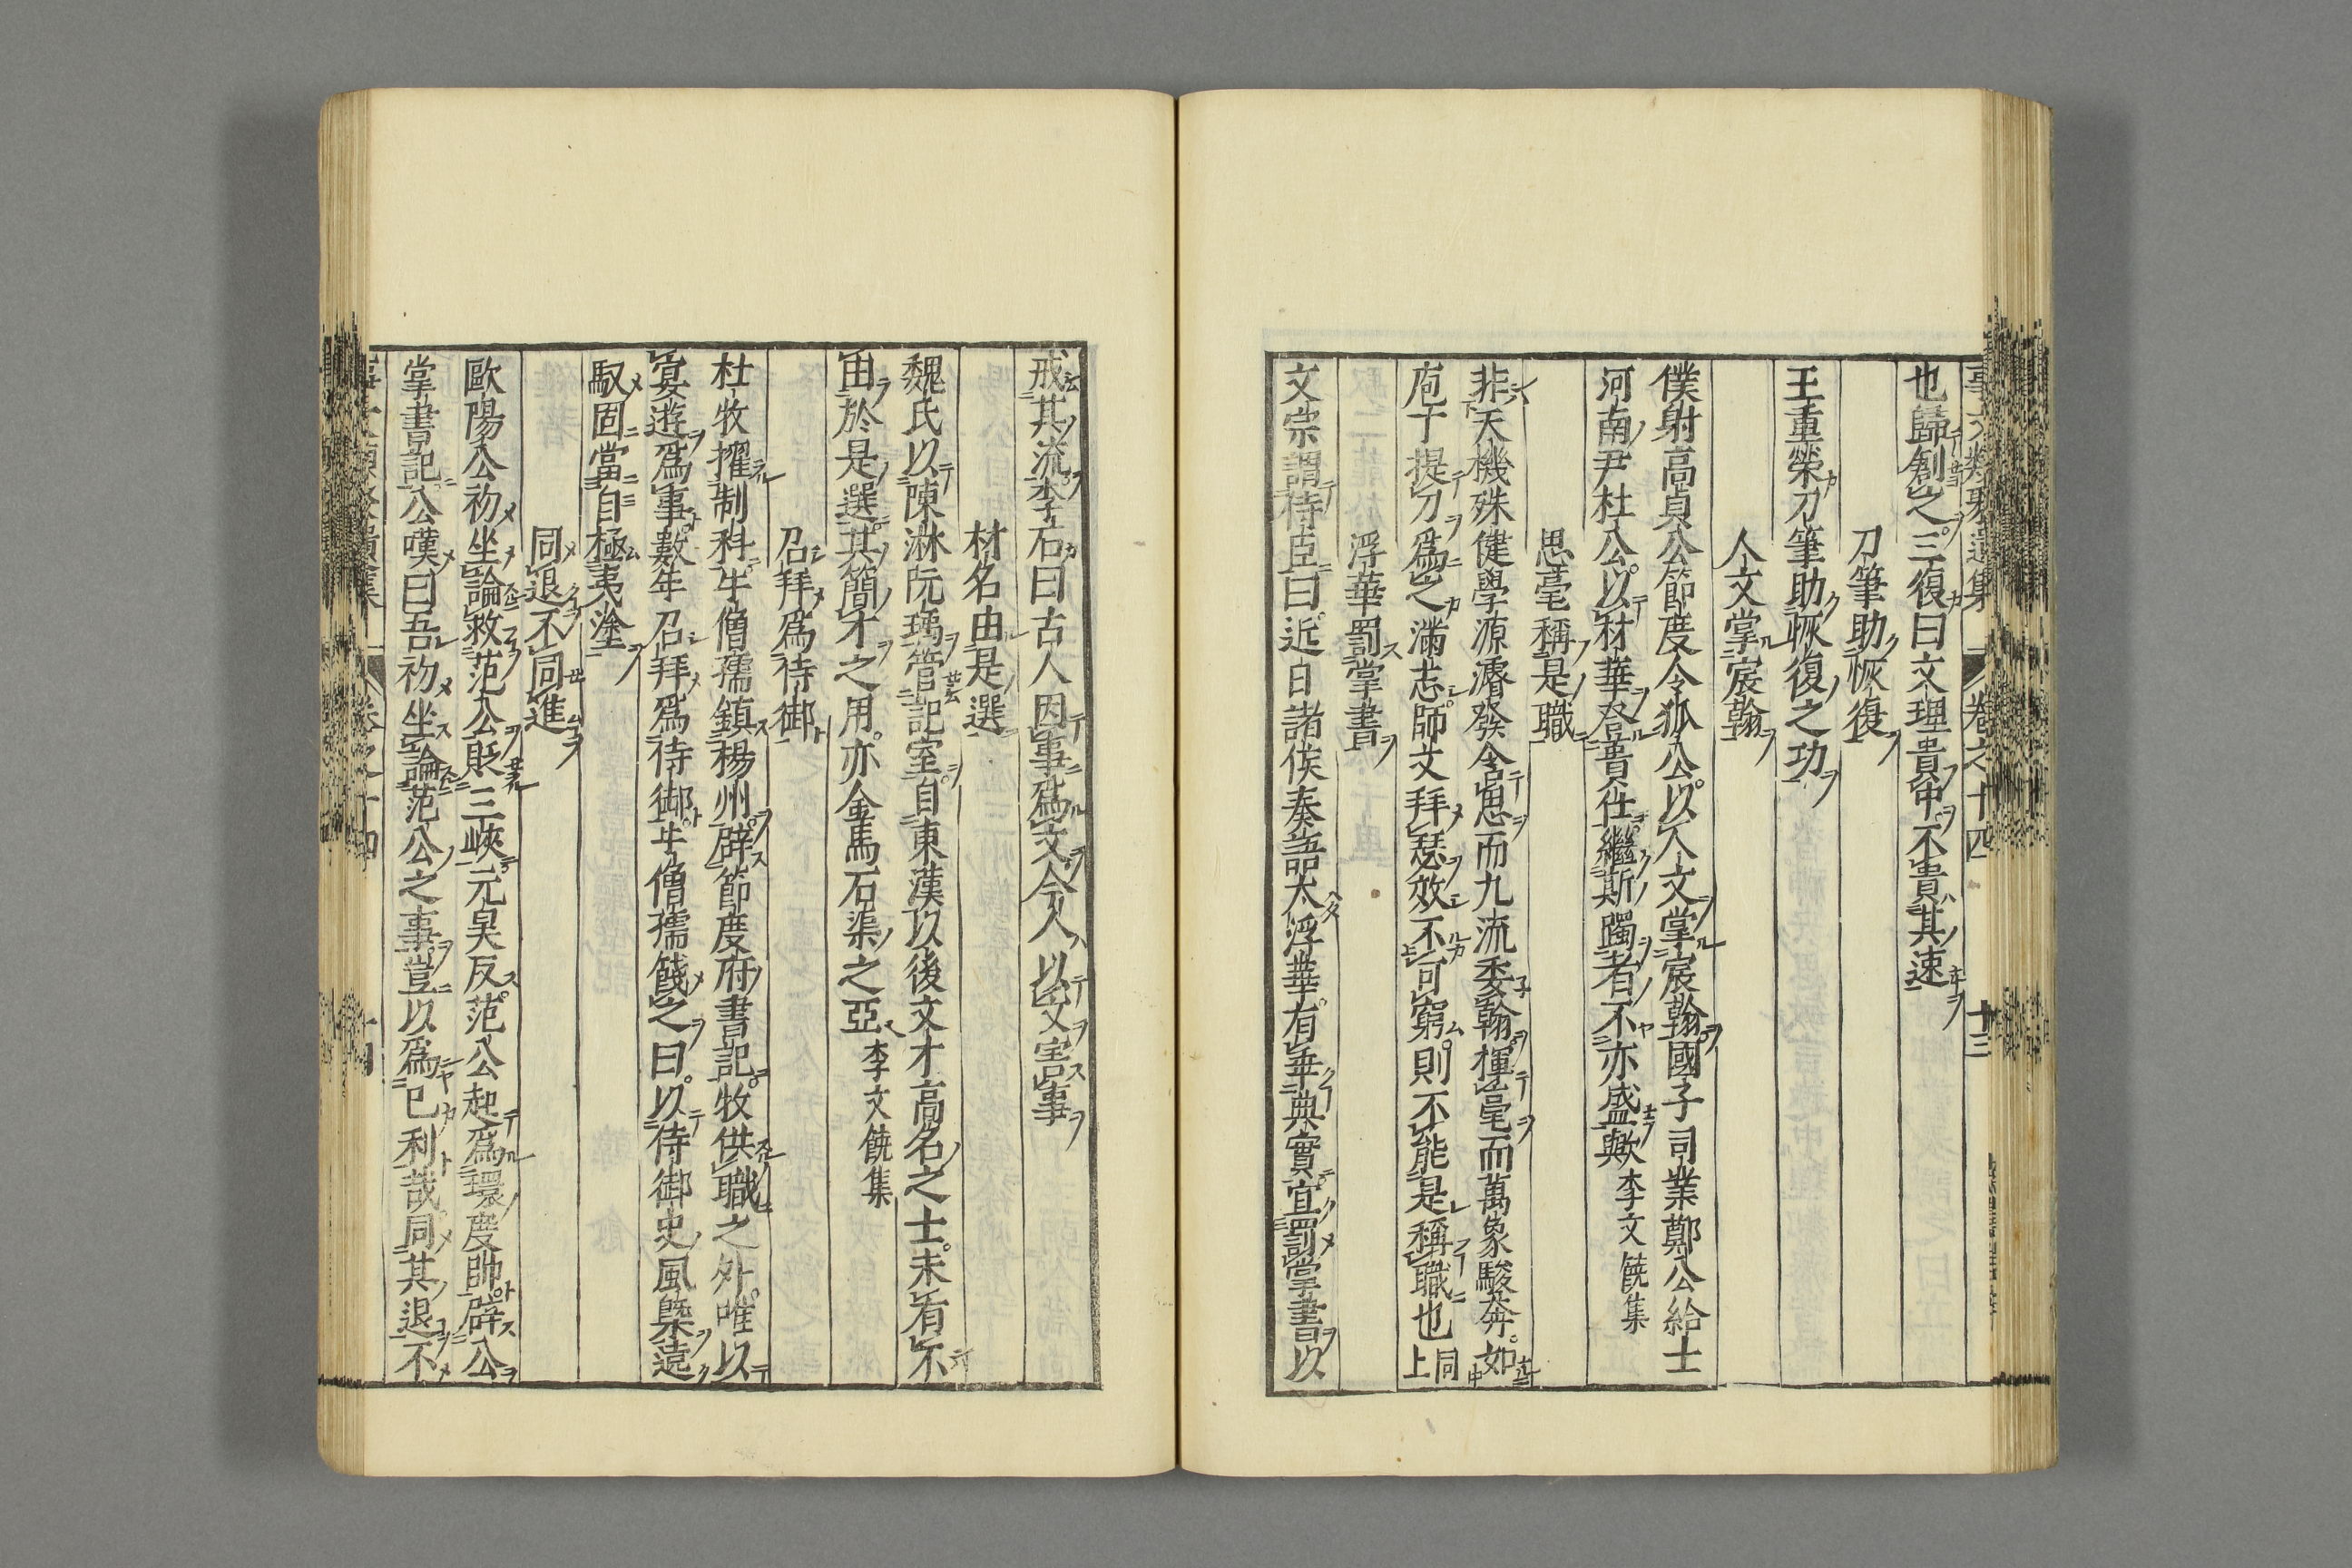 事文類聚遺集 卷之十四 十三
也歸創之三復曰文理貴中不貴其速
刀筆助恢復
王重榮刀筆助恢復之功
人文掌宸翰
僕射高貞公節度令狐公以人文掌宸翰國子司業鄭公給士
河南尹杜公以材華登晉仕繼斯躅者不亦盛歟李文饒集
思毫稱是職
非天機殊健學源濬發令思而九流委翰揮毫而萬象駿奔如
庖丁提刀爲之滿志師文拜瑟效不可窮則不能是稱職也同上
浮華罰掌書
文宗謂待臣曰近日諸侯奏語太浮華有乖典實宜罰掌書以
戒其流李石曰古人因事爲文今人以文害事
材名由是選
魏氏以陳淋阮瑀管記室自東漢以後文才高名之士未有不
由於是選其簡才之用亦金馬石渠之亞李文饒集
召拜爲待御
杜牧擢制科牛僧孺鎮楊州辟節度府書記牧供職之外唯以
宴遊爲事數年召拜爲待御牛僧孺餞之曰以待御史風槩遠
馭固當自極夷塗
同退不同進
歐陽公初坐論救范公貶三峽元昊反范公起爲環慶帥辟公
掌書記公嘆曰吾初坐論范公之事豈以爲己利哉同其退不